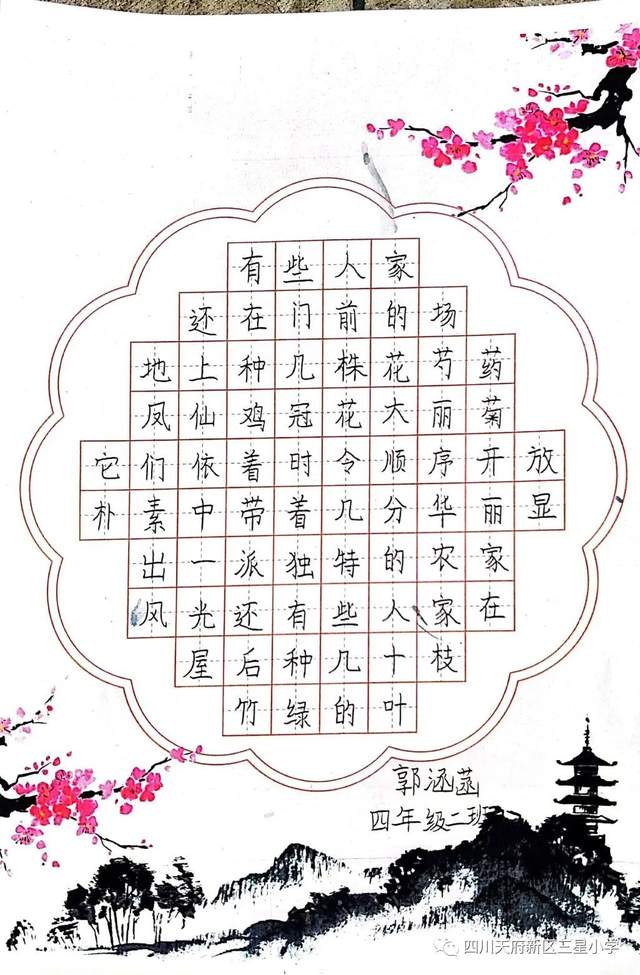 有些人家
还在门前的场
地上种几株花芍药
凤仙鸡冠花大丽菊
它们依着时令顺序开放
朴素中带着几分华丽显
出一派独特的农家
风光还有些人家在
屋后种几十枝
竹绿的叶
郭涵菡
四年级二班
四川天府新区三星小学